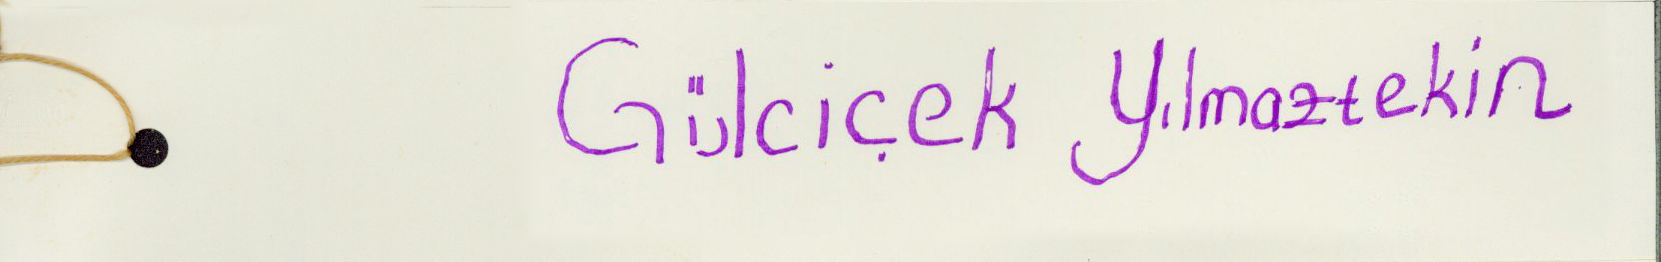 Gülciçek Yılmaztekin